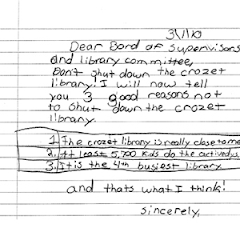 3/1/10
Dear Bord of supervisors
and library committee,
Don't shut down the crozet
library. I will now tell
you 3 good reasons not
to shut down the crozet
library.
1. The crozet library is really close to me
2. At least 5,700 kids do the
3. It is the 4th busiest library
and thats what I think!
sincerely,